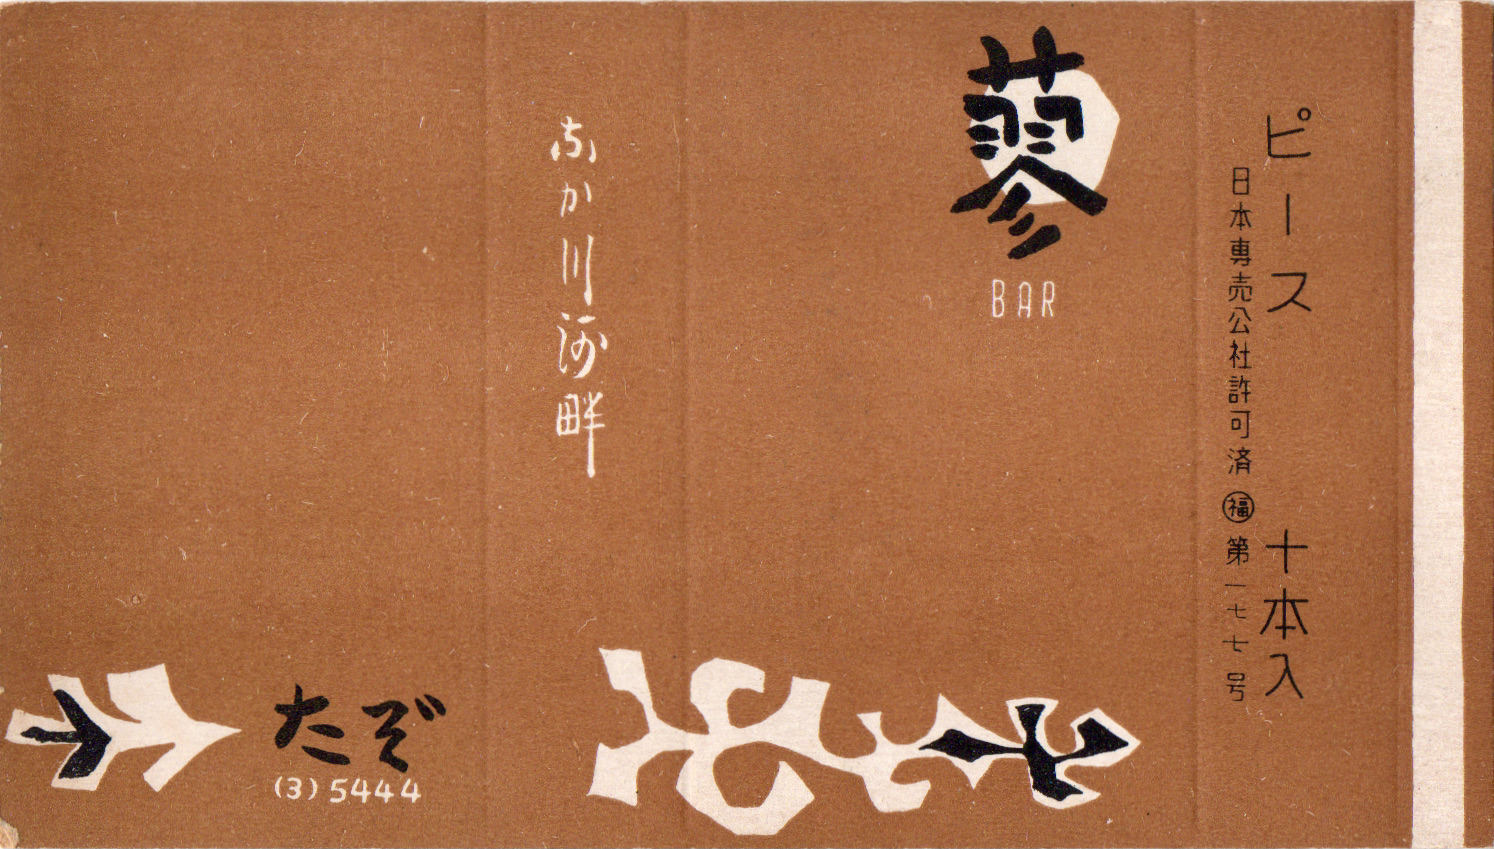 ピース 十本入
日本専売公社許可済 ㊕福 第一七七号
蓼
BAR
なか川河畔
たで
(3)5444